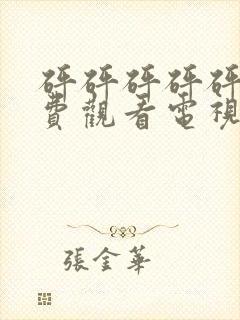 砰砰砰砰砰
費觀看電視
張金華